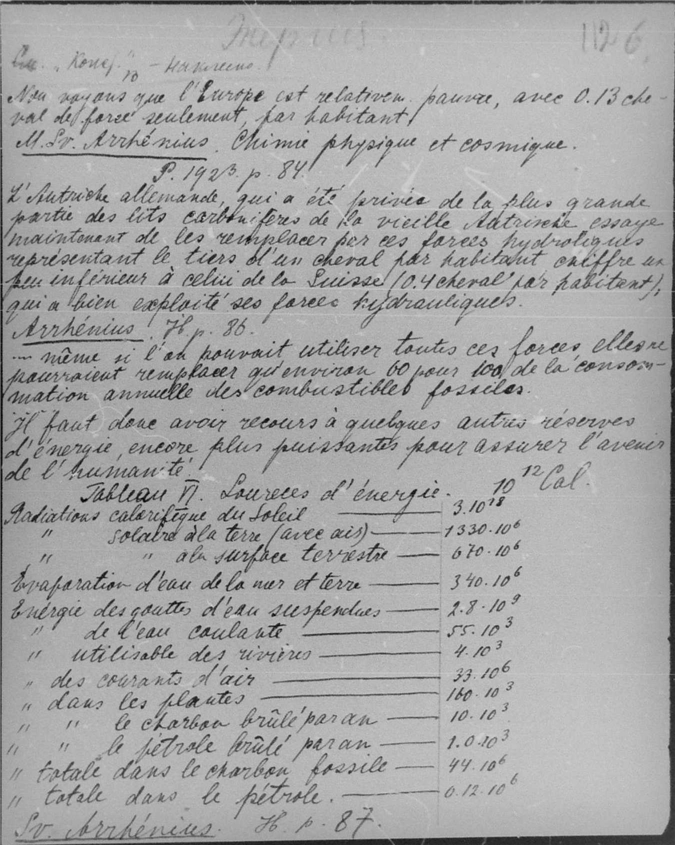 Энергия. 112 6.
См. "Конф."
Nou voyons que l'Europe est relativem. pauvre, avec 0.13 che-
val de force seulement, par habitant
M. Sv. Arrhénius. Chimie physique et cosmique.
P. 1923. p. 84.
L'Autriche allemande, qui a été privée de la plus grande
partie des lits carbonifères de la vieille Autrische essaye
maintenant de les remplacer par ces forces hydroliques
représentant le tiers d'un cheval par habitant chiffre un
peu inférieur à celui de la Suisse (0.4 cheval par habitant),
qui a bien exploité ses forces hydrauliques.
Arrhénius. Ib. p. 86.
... même si l'on pouvait utiliser toutes ces forces elles ne
pourraient remplacer qu'environ 60 pour 100 de la consom-
mation annuelle des combustibles fossiles.
Il faut donc avoir recours à quelques autres réserves
d'énergie, encore plus puissantes pour assurer l'avenir
de l'humanité.
Tableau VI. Soureces d'énergie. 10^12 Cal.
Radiations calorifique du Soleil — 3.10^18
" solaire à la terre (avec ais) — 1330.10^6
" " à la surface terrestre — 670.10^6
Evaporation d'eau de la mer et terre — 340.10^6
Energie des gouttes d'eau suspendues — 2.8.10^9
" de l'eau coulante — 55.10^3
" utilisable des rivières — 4.10^3
" des courants d'air — 33.10^6
" dans les plantes — 160.10^3
" " le charbon brûlé par an — 10.10^3
" " le pétrole brûlé par an — 1.0.10^3
" totale dans le charbon fossile — 44.10^6
" totale dans le pétrole. — 0.12.10^6
Sv. Arrhénius. Ib. p. 87.